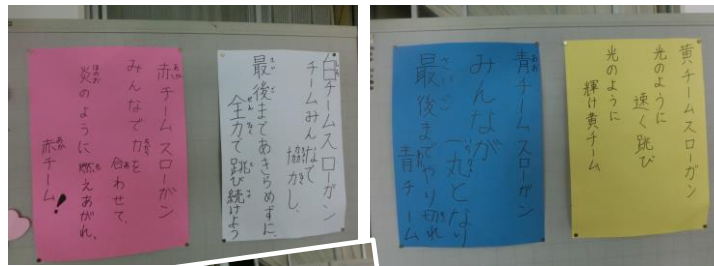 赤チームスローガン
みんなで力を
合わせて、
炎のように燃えあがれ、
赤チーム!
白チームスローガン
チームみんなで
協力し、
最後まであきらめずに、
全力で跳び続けよう
青チームスローガン
みんなが
一丸となり
最後までやり切れ
青チーム
黄チームスローガン
光のように
速く跳び
光のように
輝け黄チーム